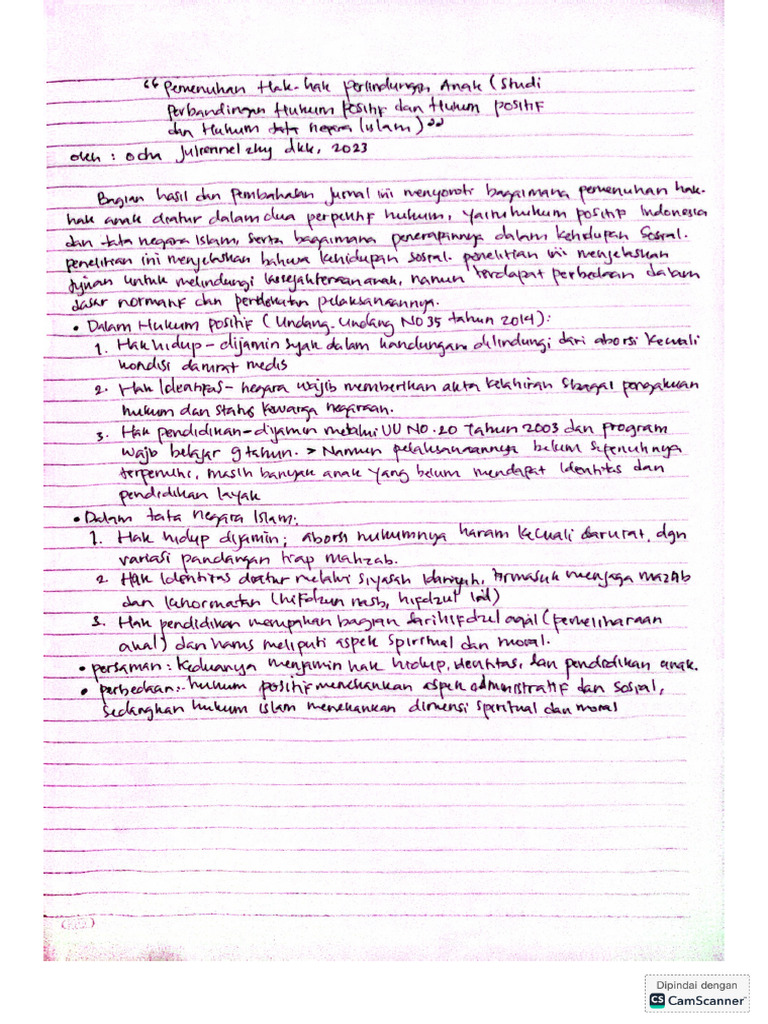 "Pemenuhan Hak-hak perlindungan Anak (Studi
perbandingan Hukum positif dan Hukum positif
dan Hukum tata negara Islam)"
oleh : ocha Julrennelzky dkk, 2023
Bagian hasil dan Pembahasan Jurnal ini menyoroti bagaimana pemenuhan hak-
hak anak diatur dalam dua perpektif hukum, yaitu hukum positif Indonesia
dan tata negara Islam, serta bagaimana penerapannya dalam kehidupan Sosial.
penelitian ini menjelaskan bahwa kehidupan sosial. penelitian ini menjelaskan
tujuan untuk melindungi kesejahteraan anak, namun terdapat perbedaan dalam
dasar normatif dan pendekatan pelaksanaannya.
• Dalam Hukum positif (Undang-Undang No 35 tahun 2014):
1. Hak hidup – dijamin sejak dalam kandungan dilindungi dari aborsi kecuali
kondisi darurat medis
2. Hak Identitas – negara wajib memberikan akta kelahiran sebagai pengakuan
hukum dan status kewarga negaraan.
3. Hak pendidikan – dijamin melalui UU NO. 20 Tahun 2003 dan program
wajib belajar 9 tahun. > Namun pelaksanaannya belum sepenuhnya
terpenuhi, masih banyak anak yang belum mendapat identitas dan
pendidikan layak
• Dalam tata negara Islam:
1. Hak hidup dijamin; aborsi hukumnya haram kecuali darurat, dgn
variasi pandangan tiap mahzab.
2. Hak Identitas diatur melalui siyasah idariyah, termasuk menjaga
dan kehormatan (hifdzun nasb, hifdzul)
3. Hak pendidikan merupakan bagian dari hifdzul aqal (pemeliharaan
akal) dan harus meliputi aspek spiritual dan moral.
• persamaan : keduanya menjamin hak hidup, identitas, dan pendidikan anak.
• perbedaan : hukum positif menekankan aspek administratif dan sosial,
sedangkan hukum islam menekankan dimensi spiritual dan moral
Dipindai dengan
CS CamScanner